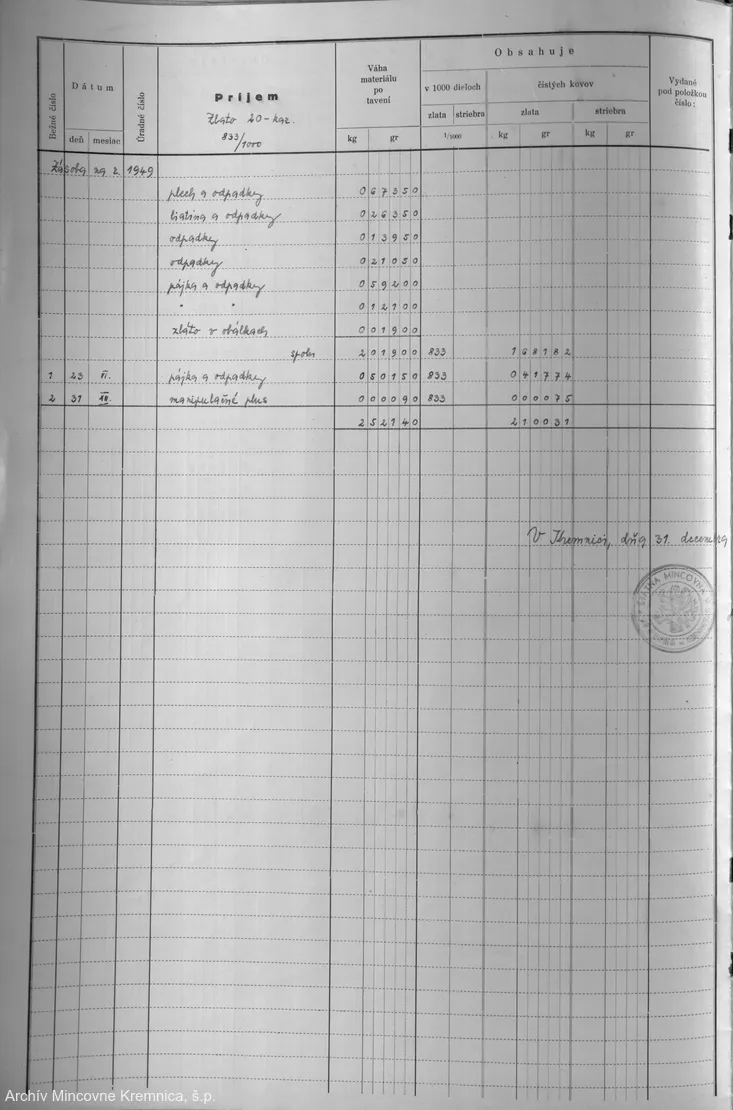 Obsahuje
Bežné číslo
Dátum
Úradné číslo
Príjem
Zlato 20-kar.
833/1000
Váha
materiálu
po
tavení
v 1000 dieloch
čistých kovov
Vydané
pod položkou
číslo:
zlata
striebra
zlata
striebra
deň
mesiac
kg
gr
1/1000
kg
gr
kg
gr
Zásoba na r. 1949
plech a odpadky 0 67350
liatina a odpadky 0 26350
odpadky 0 13950
odpadky 0 21050
pájka a odpadky 0 59200
" " 0 12100
zlato v obálkach 0 01900
spolu 2 01900 833 1 68182
1 23 VI. pájka a odpadky 0 50150 833 0 41774
2 31 XII. manipulačné plus 0 00090 833 0 00075
2 52140 2 10031
V Kremnici, dňa 31. decembra
ŠTÁTNA MINCOVŇA
Archív Mincovne Kremnica, š.p.